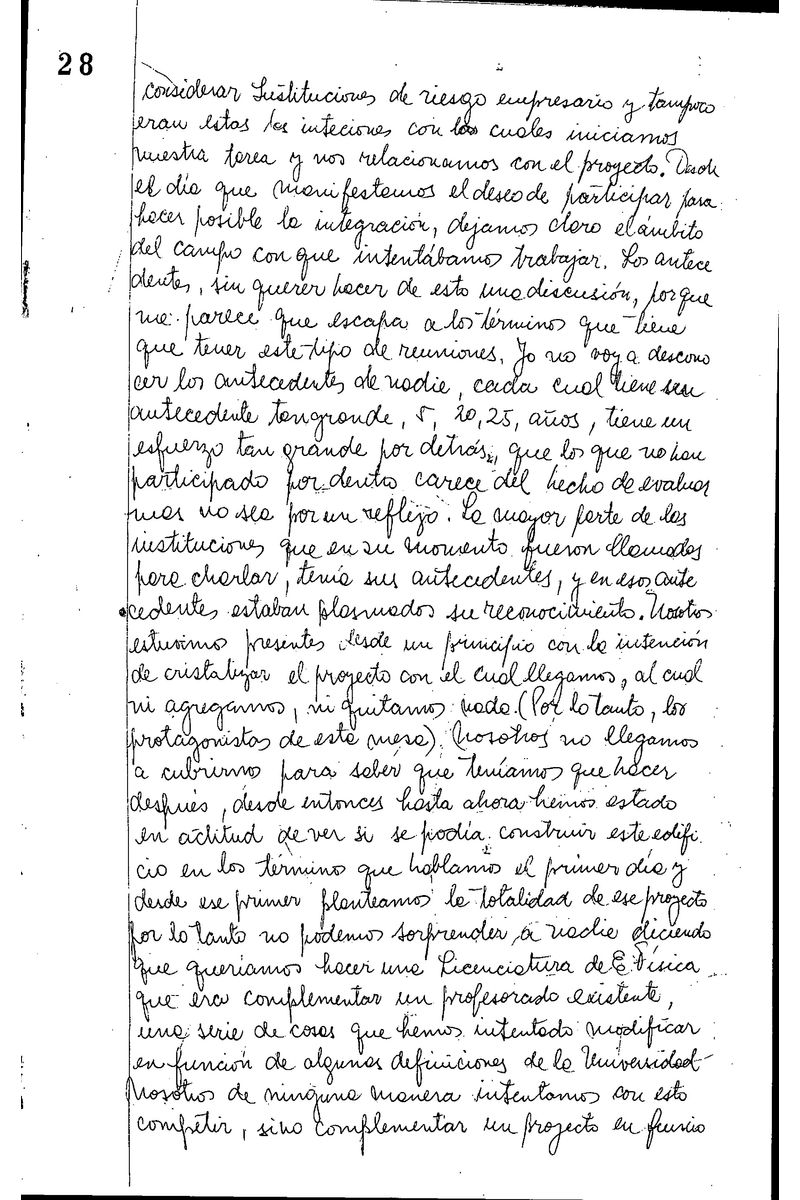 28
considerar Instituciones de riesgo empresario y tampoco
eran estas las inteciones con las cuales iniciamos
nuestra tarea y nos relacionamos con el proyecto. Desde
el día que manifestamos el deseo de participar para
hacer posible la integración, dejamos claro el ámbito
del campo con que intentábamos trabajar. Los antece
dentes, sin querer hacer de esto una discusión, porque
me parece que escapa a los términos que tiene
que tener este tipo de reuniones, Yo no voy a descono
cer los antecedentes de nadie, cada cual tiene su
antecedente tan grande, 5, 20, 25, años, tiene un
esfuerzo tan grande por detrás, que los que no han
participado por dentro carece del hecho de evaluar
mas no sea por un reflejo. La mayor parte de las
instituciones que en su momento fueron llamadas
para charlar, tenía sus antecedentes, y en esos ante
cedentes estaban plasmados su reconocimiento. Nosotros
estuvimo presentes desde un principio con la intención
de cristalizar el proyecto con el cual llegamos, al cual
ni agregamos, ni quitamos nada. (Por lo tanto, los
protagonistas de esta mesa). Nosotros no llegamos
a cubrirnos para saber que teníamos que hacer
después, desde entonces hasta ahora hemos estado
en actitud de ver si se podía construir este edifi
cio en los término que hablamos el primer día y
desde ese primer planteamos la totalidad de ese proyecto
por lo tanto no podemos sorprender a nadie diciendo
que queríamos hacer una Licenciatura de E. Física
que era complementar un profesorado existente,
una serie de cosas que hemos intentado modificar
en función de algunas definiciones de la Universidad
Nosotros de ninguna manera intentamos con esto
competir, sino complementar un proyecto en funcio